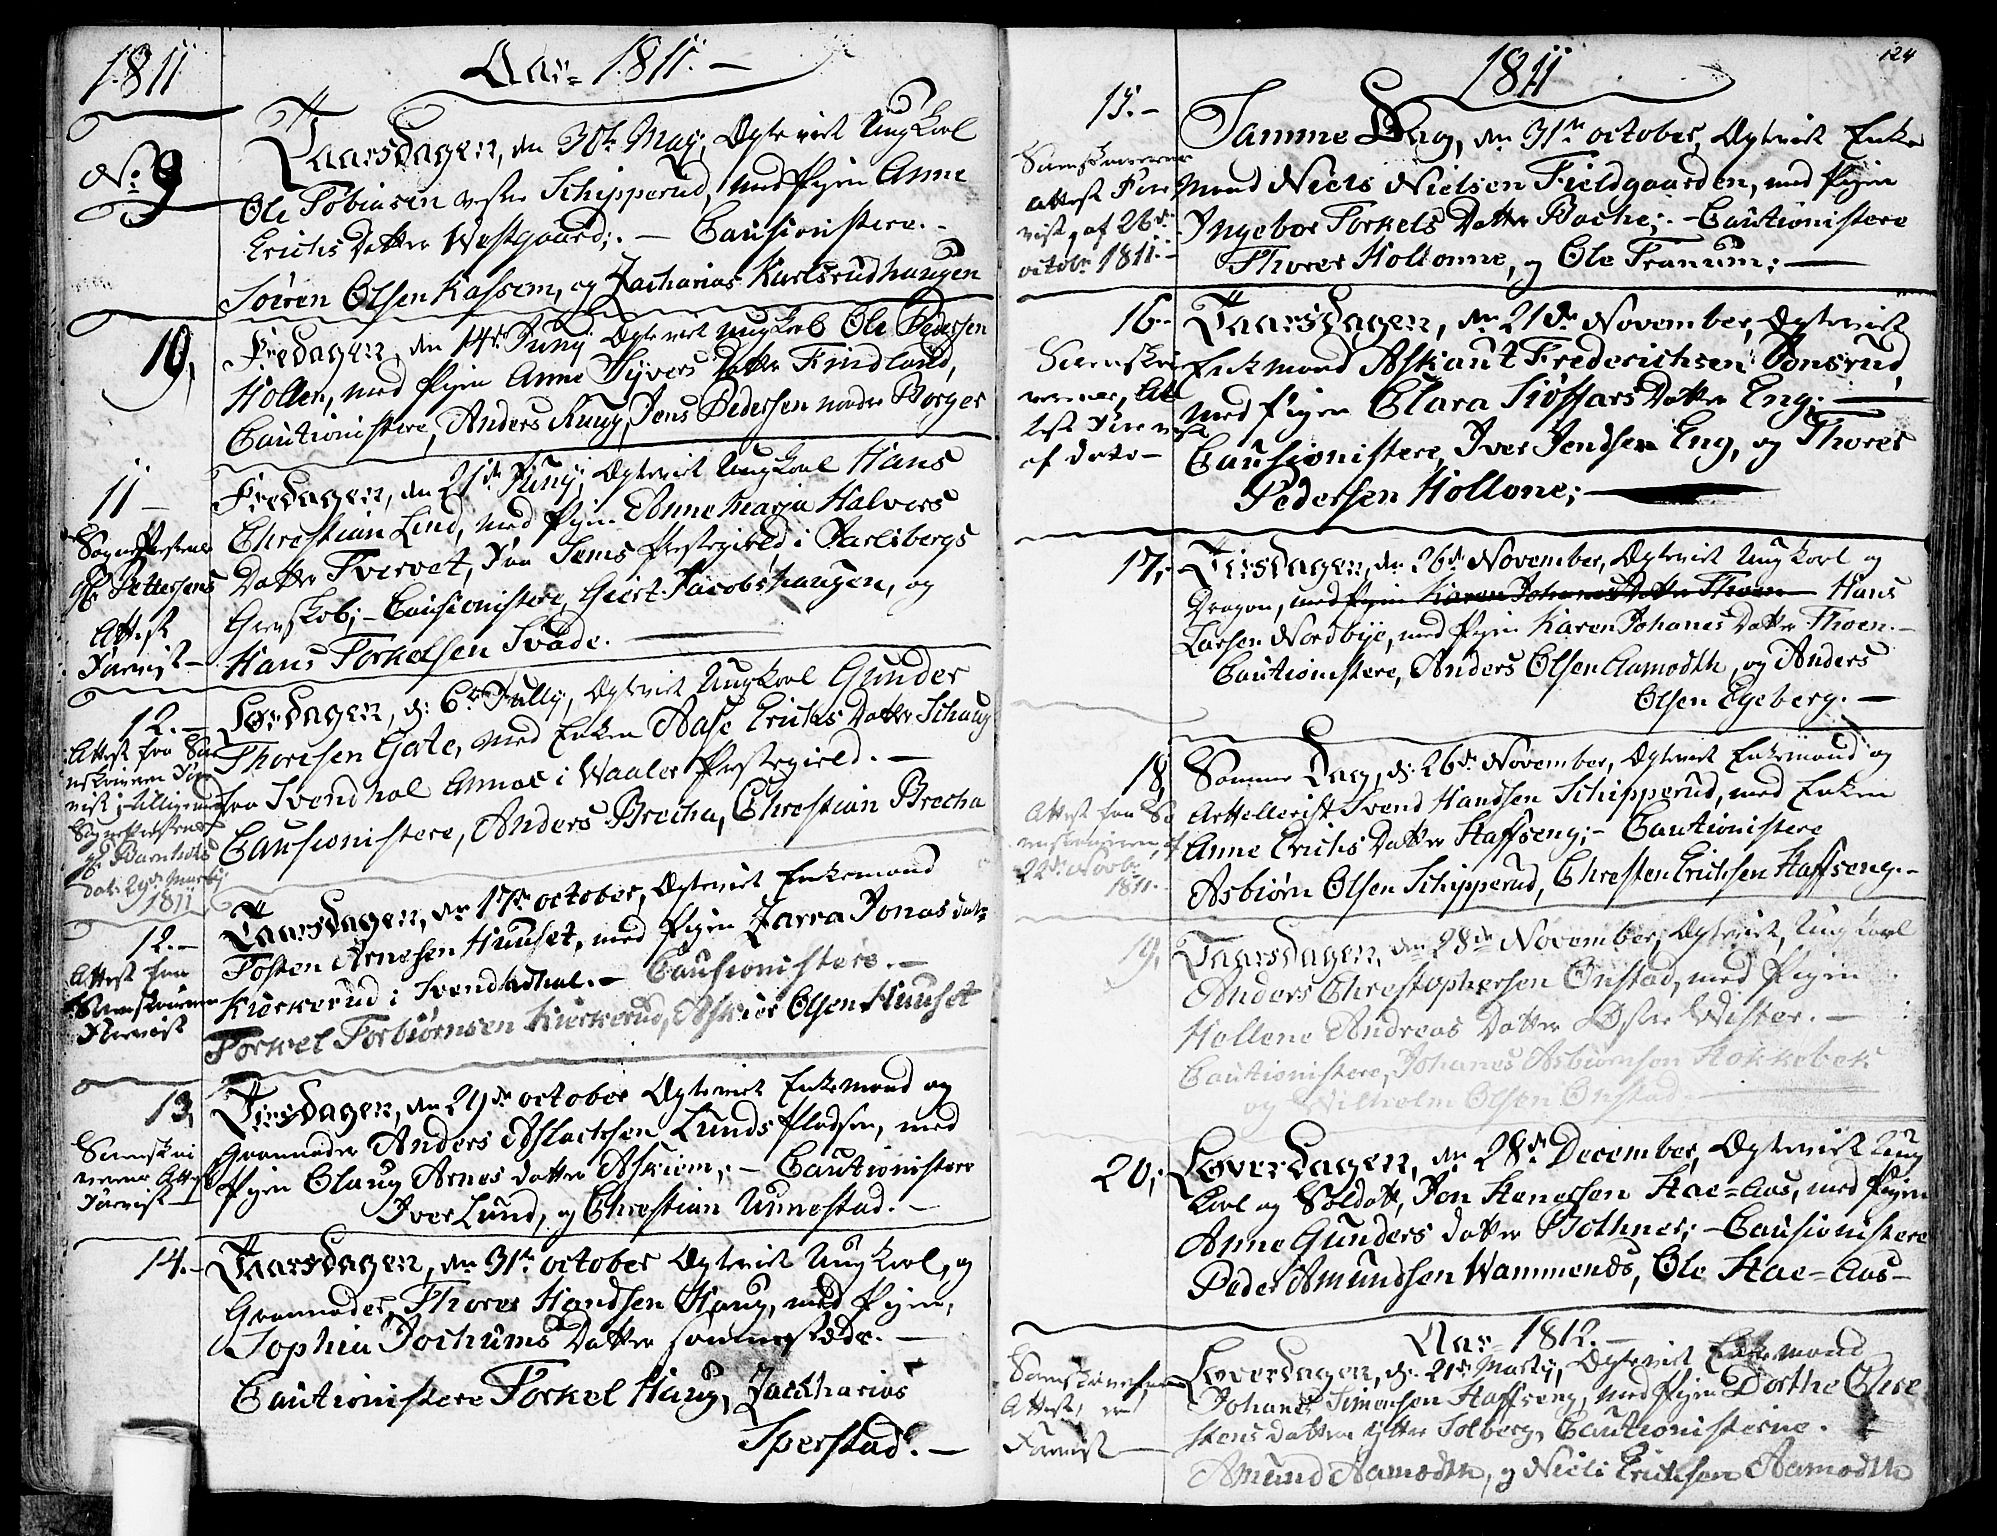 1811
Aar 1811. —
No 9
Taarsdagen, den 30te Maij, Ægteviet Ungkarl
Ole Tobiasen vestre Schipperud, med Pigen Anne
Erichs Datter Westgaard;. — Causionistere. -
Søren Olsen Kassem, og Zacharias Karlsrudhaugen
10,
Fredagen, den 14de Junij Ægteviet Ungkarl Ole Pedersen
Hollen, med Pigen Anne Syvers Datter Findland,
Cautionistere, Anders Ruug, Jens Pedersen nordre Borger
11 —
Sogne Præstens
Hr. Pettersens
Attest
Forevist —
Fredagen, den 21de Junij, Ægteviet Ungkarl Hans
Christian Lind, med Pigen Anne Maria Halvors
Datter Tvervet, fra Sems Præstegield i Jarlsbergs
Grevskab; — Causionistere, Giert Jacobshaugen, og
Hans Torkelsen Svade. —
12. —
Attest fra So
renskriveren Fore
vist; tilligemed
Sognepræstens
Hr Barnholts
dat. 29de Martij
1811
Lørdagen, d: 6te Jully, Ægteviet Ungkarl Gunder
Thoresen Gate, med Enken Aase Erichs Datter Schaug
fra Svendhol Annex i Waaler Præstegield. —
Causionistere, Anders Brecha, Christian Brecha
12. —
Attest fra
Sorenskriveren
Forevist
Taarsdagen, den 17de october, Ægteviet Enkemand
Tosten Arnesen Huuset, med Pigen Zarra Jonas datr
Kierkerud i Svendhol. — Causionistere. —
Torkel Torbiørnsen Kierkerud, Askier Olsen Huuset
13,
Sorenskri
verens Attest
Forevist —
Tirsdagen, den 29de october Ægteviet Enkemand og
Grannader Anders Aslachsen Lunds Pladsen, med
Pigen Olaug Arnes datter Askiem; — Cautionistere
Iver Lund, og Christian Unnestad. —
14. —
Taarsdagen, den 31te october Ægteviet Ungkarl, og
Grannader, Thores Handsen Haug, med Pigen,
Sophia Jochums Datter sammestæds. —
Cautionistere Torkel Haug, Zachharias
Sperstad. —
124
1811
15. —
Sorenskriverens
Attest Fore
vist, af 26de
octobr 1811. —
Samme Dag, den 31te october, Ægteviet Enke
mand Niels Nielsen Fieldgaarden, med Pigen
Ingebor Torkels Datter Bache;. — Cautionistere
Thorer Hollonne, og Ole Tranum; —
16. -
Sorenskri
verens, At
test Forevist
af dato —
Taarsdagen, den 21de November, Ægteviet
Enkemand Askaut Frederichsen Tonsrud,
med Pigen Clara Siøffars Datter Eng; —
Causionistere, Iver Jendsen Eng, og Thores
Pedersen Hollone; —
17;
Tirsdagen, den 26de November, Ægteviet Ungkarl og
Dragon, med Pigen Karen Johanes Datter Thoen Hans
Larsen Nordbye, med Pigen Karen Johanes Datter Thoen. —
Cautionistere, Anders Olsen Aamodth, og Anders
Olsen Egeberg. —
18,
Attest fra So
renskriveren, af
22de Novbr
1811. —
Samme Dag, d: 26de November, Ægteviet Enkemand og
Arttellerist Svend Handsen Schipperud, med Enken
Anne Erichs Datter Haffseng; — Cautionistere
Asbiørn Olsen Schipperud, Christen Erichsen Haffseng. -
19,
Taarsdagen, den 28de November, Ægteviet, Ungkarl
Anders Christophersen Onstad, med Pigen
Hellene Andreas Datter Østre Wister. —
Cautionistere, Johanes Asbiørnsen Stokkebek
og Wilhelm Olsen Onstad. —
20;
Løverdagen, den 28de December, Ægteviet Ung
karl og Soldatt, Jon Stenersen Hae=Aas, med Pigen
Anne Gunders datter Bothner; — Causionistere
Peder Amundsen Wammends, Ole Hae=Aas —
Aar 1812. —
Sorenskriverens
Attest, er
Forevist —
Løverdagen, d: 21de Martij, Ægteviet Enkemand
Johanes Simensen Haffseng, med Pigen Dorthe Chre
stens datter ytter Solberg, Cautionisterne.
Amund Aamodth, og Niels Erichsen Aamodth